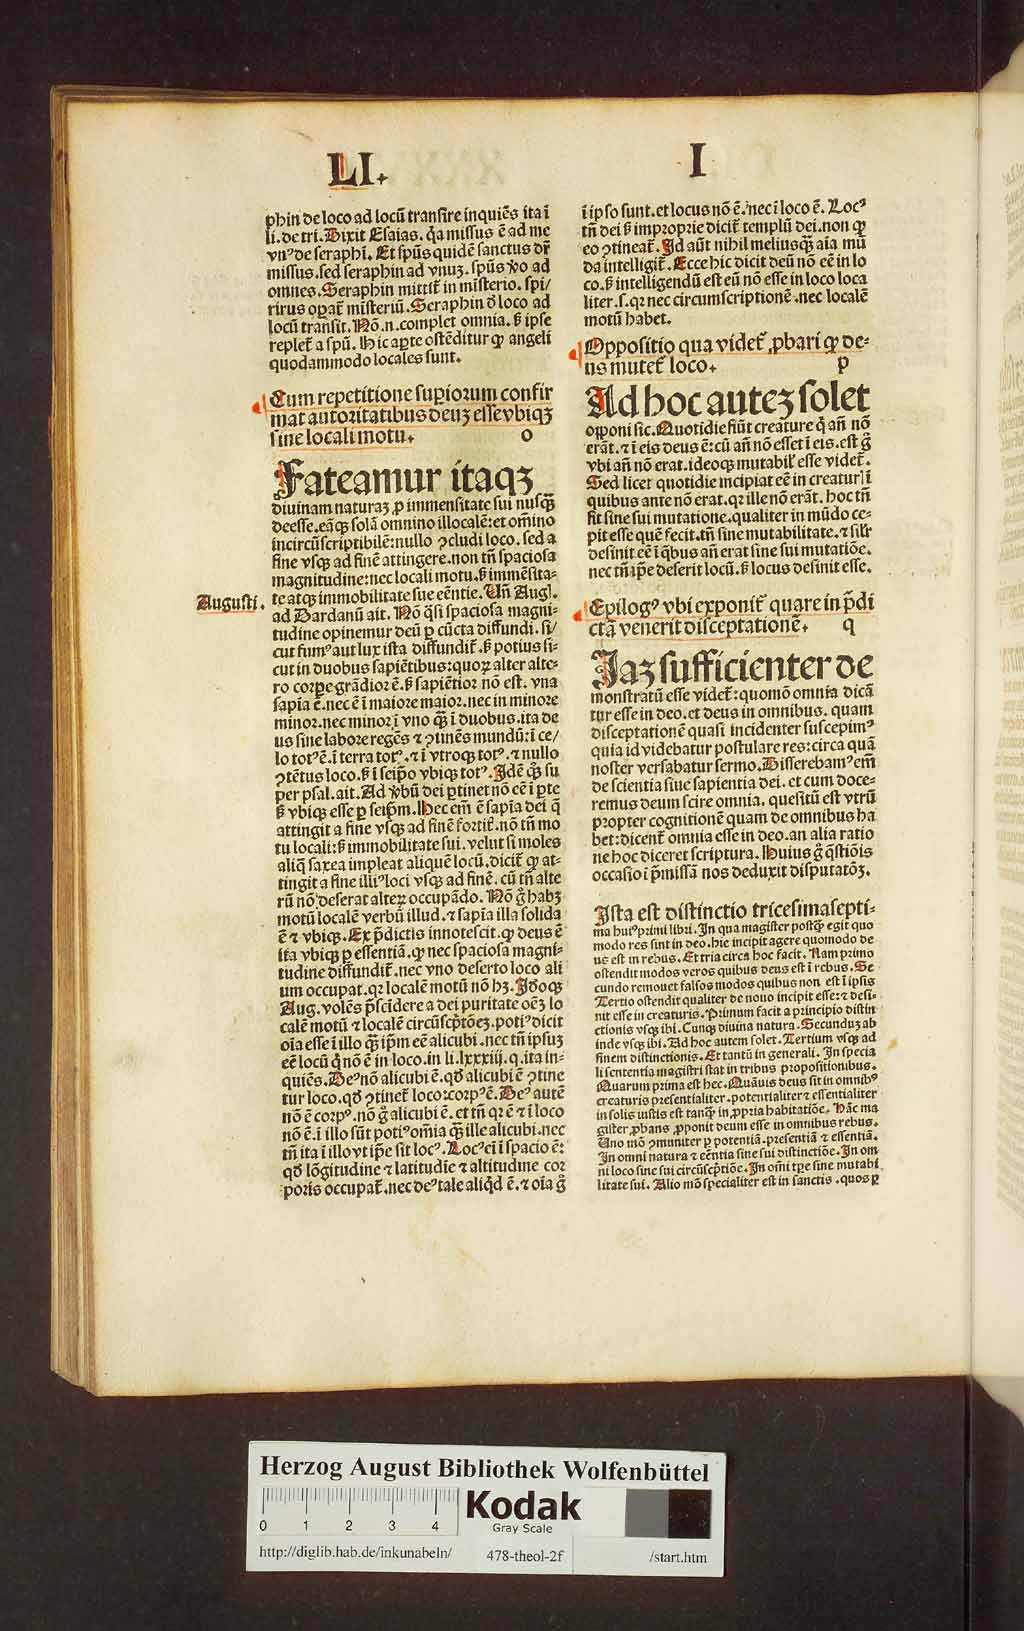 LI.
I
phin de loco ad locū transire inquiēs ita ī
li. de tri. Dixit Esaias. q̄a missus ē ad me
vnꝰ de seraphī. Et spūs quidē sanctus dr̄
missus. sed seraphin ad vnuʒ. spūs ꝟo ad
omnes. Seraphin mittit̄ in misterio. spi/
ritus opat̄ misteriū. Seraphin ꝺ loco ad
locū transit. Nō.n. complet omnia. ꝭ ipse
replet̄ a spū. Hic apte ostēditur ꝙ angeli
quodammodo locales sunt.
Cum repetitione supiorum confir
mat autoritatibus deuʒ esse vbiqʒ
sine locali motu. o
Fateamur itaqʒ
diuinam naturaʒ ꝓ immensitate sui nusq̄ꝫ
deesse. eāqʒ solā omnino illocalē: et om̄ino
incircūscriptibilē: nullo ꝯcludi loco. sed a
fine vsqʒ ad finē attingere. non tn̄ spaciosa
magnitudine: nec locali motu. ꝭ immēsita⸗
te atqʒ immobilitate sue eēntie. Un̄ Augꝉ.
Augusti.
ad Dardanū ait. Nō q̄si spaciosa magni⸗
tudine opinemur deū ꝑ cūcta diffundi. si/
cut fumꝰ aut lux ista diffundit̄. ꝭ potius si⸗
cut in duobus sapiētibus: quoꝝ alter alte⸗
ro corpe grādior ē. ꝭ sapiētior nō est. vna
sapīa ē. nec ē ī maiore maior. nec in minore
minor. nec minor ī vno q̄ꝫ ī duobus. ita de
us sine labore regēs ⁊ ꝯtinēs mundū: ī ce/
lo totꝰ ē. ī terra totꝰ. ⁊ ī vtroqʒ totꝰ. ⁊ nullo
ꝯtētus loco. ꝭ ī seip̄o vbiqʒ totꝰ. Idē q̄ꝫ su
per psal. ait. Ad ꝟbū dei ꝑtinet nō eē ī ꝑte
ꝭ vbiqʒ esse ꝑ seip̄m. Hec em̄ ē sapīa dei q̄
attingit a fine vsqʒ ad finē fortit̄. nō tn̄ mo
tu locali: ꝭ immobilitate sui. velut si moles
aliq̄ saxea impleat aliquē locū. dicit̄ ꝙ at⸗
tingit a fine illiꝰ loci vsqʒ ad finē. cū tn̄ alte
rū nō deserat alteꝝ occupādo. Nō g̊ habʒ
motū localē verbū illud. ⁊ sapīa illa solida
ē ⁊ vbiqʒ. Ex p̄dictis innotescit. ꝙ deus ē
ita vbiqʒ ꝑ essentiā. ꝙ nec spaciosa magni⸗
tudine diffundit̄. nec vno deserto loco ali
um occupat. qꝛ localē motū nō hʒ. Iꝺoqʒ
Aug. volēs p̄scidere a dei puritate oēʒ lo
calē motū ⁊ localē circūscp̄tōeʒ. potiꝰ dicit
oīa esse ī illo q̄ꝫ ip̄m eē alicubi. nec tn̄ ipsuʒ
eē locū q̄ nō ē in loco. in li. lxxxiij. q. ita in⸗
quiēs. Deꝰ nō alicubi ē. qꝺ alicubi ē ꝯtine
tur loco. qꝺ ꝯtinet̄ loco: corpꝰ ē. Deꝰ autē
nō ē corpꝰ. nō g̊ alicubi ē. et tn̄ qꝛ ē ⁊ ī loco
nō ē. ī illo sūt potiꝰ om̄ia q̄ꝫ ille alicubi. nec
tn̄ ita ī illo vt ip̄e sit locꝰ. Locꝰ eī ī spacio ē:
qꝺ lōgitudine ⁊ latitudīe ⁊ altitudine cor
poris occupat̄. nec deꝰ tale aliq̄d ē. ⁊ oīa g̊
ī ipso sunt. et locus nō ē. nec ī loco ē. Locꝰ
tn̄ dei ꝭ improprie dicit̄ templū dei. non ꝙ
eo ꝯtineat̄. Id aūt nihil meliusq̄ꝫ aīa mū
da intelligit̄. Ecce hic dicit deū nō eē in lo
co. ꝭ intelligendū est eū nō esse in loco loca
liter. s. qꝛ nec circumscriptionē. nec localē
motū habet.
Oppositio qua videt̄ ꝓbari ꝙ de⸗
us mutet̄ loco. p
Ad hoc auteʒ solet
opponi sic. Quotidie fiūt creature q̄ an̄ nō
erāt. ⁊ ī eis deus ē: cū an̄ nō esset ī eis. est g̊
vbi an̄ nō erat. ideoqʒ mutabil̓ esse videt̄.
Sed licet quotidie incipiat eē in creaturꝭ ī
quibus ante nō erat. qꝛ ille nō erāt. hoc tn̄
fit sine sui mutatione. qualiter in mūdo ce⸗
pit esse quē fecit. tn̄ sine mutabilitate. ⁊ sil̓r
desinit eē ī q̄bus an̄ erat sine sui mutatiōe.
nec tn̄ ip̄e deserit locū. ꝭ locus desinit esse.
Epilogꝰ vbi exponit̄ quare in p̄di
ctā venerit disceptationē. q
Iaʒ sufficienter de
monstratū esse videt̄: quomō omnia dicā
tur esse in deo. et deus in omnibus. quam
disceptationē quasi incidenter suscepimꝰ
quia id videbatur postulare res: circa quā
noster versabatur sermo. Disserebamꝰ em̄
de scientia siue sapientia dei. et cum doce⸗
remus deum scire omnia. quesitū est vtrū
propter cognitionē quam de omnibus ha
bet: dicent̄ omnia esse in deo. an alia ratio
ne hoc diceret scriptura. Huius g̊ q̄stiōis
occasio ī p̄missā nos deduxit disputatōʒ.
Ista est distinctio tricesimasepti⸗
ma huiꝰ primi libri. In qua magister postq̄ꝫ egit quo
modo res sint in deo. hic incipit agere quomodo de
us est in rebus. Et tria circa hoc facit. Nam primo
ostendit modos veros quibus deus est ī rebus. Se
cundo remouet falsos modos quibus non est ī ipsis
Tertio ostendit qualiter de nouo incipit esse: ⁊ desi⸗
nit esse in creaturis. Primum facit a principio distin
ctionis vsqʒ ibi. Cunqʒ diuina natura. Secunduʒ ab
inde vsqʒ ibi. Ad hoc autem solet. Tertium vsqʒ ad
finem distinctionis. Et tantū in generali. In specia
li sententia magistri stat in tribus propositionibus.
Quarum prima est hec. Quāuis deus sit in omnibꝰ
creaturis presentialiter. potentialiter ⁊ essentialiter
in solis iustis est tanqʒ in ꝓpria habitatiōe. Hāc ma
gister ꝓbans ꝓponit deum esse in omnibus rebus.
Uno mō ꝯmuniter ꝑ potentiā. presentiā ⁊ essentiā.
In omni natura ⁊ eēntia sine sui distinctiōe. In om
ni loco sine sui circūscp̄tiōe. In om̄i tꝑe sine mutabi
litate sui. Alio mō specialiter est in sanctis. quos ꝑ
Herzog August Bibliothek Wolfenbüttel
0 1 2 3 4
Kodak
Gray Scale
http://diglib.hab.de/inkunabeln/ 478-theol-2f /start.htm